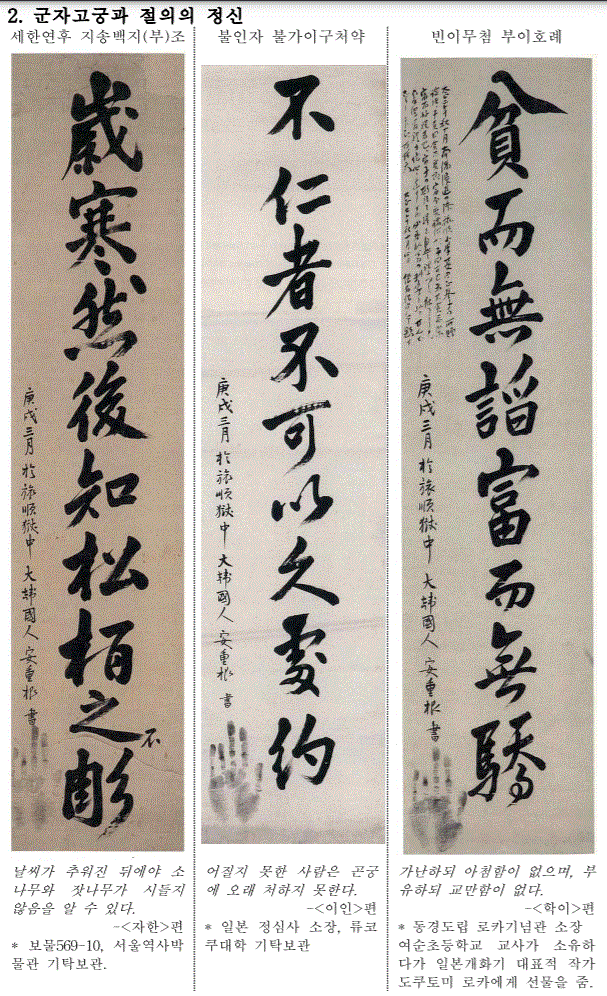 2. 군자고궁과 절의의 정신
세한연후 지송백지(부)조
歲寒然後知松栢之不彫
庚戌三月 於旅順獄中 大韓國人 安重根 書
날씨가 추워진 뒤에야 소
나무와 잣나무가 시들지
않음을 알 수 있다.
-<자한>편
* 보물569-10, 서울역사박
물관 기탁보관.
불인자 불가이구처약
不仁者不可以久處約
庚戌三月 於旅順獄中 大韓國人 安重根 書
어질지 못한 사람은 곤궁
에 오래 처하지 못한다.
-<이인>편
* 일본 정심사 소장, 류코
쿠대학 기탁보관
빈이무첨 부이호례
貧而無諂富而無驕
庚戌三月 於旅順獄中 大韓國人 安重根 書
가난하되 아첨함이 없으며, 부
유하되 교만함이 없다.
-<학이>편
* 동경도립 로카기념관 소장
여순초등학교 교사가 소유하
다가 일본개화기 대표적 작가
도쿠토미 로카에게 선물을 줌.